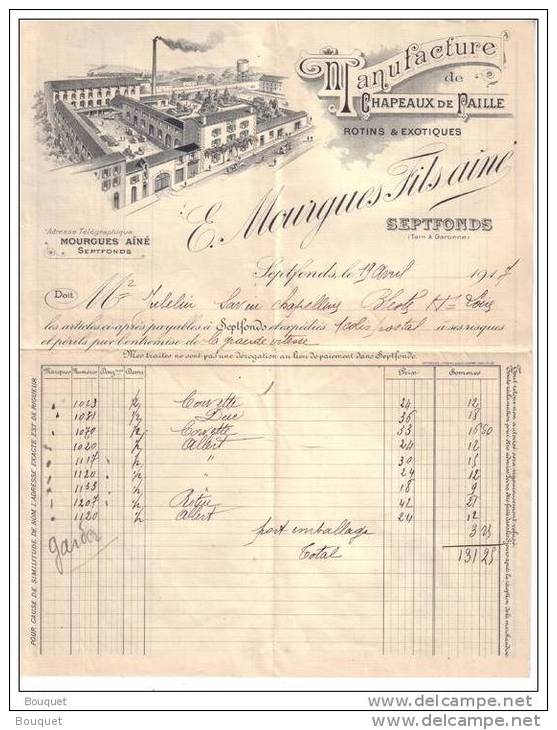 Manufacture
de
CHAPEAUX DE PAILLE
ROTINS & EXOTIQUES
E. Mourgues Fils aîné
SEPTFONDS
(Tarn & Garonne)
Adresse Télégraphique
MOURGUES AÎNÉ
SEPTFONDS
Septfonds, le 19 Avril 1917
Doit
les articles ci-après payables à Septfonds et expédiés 1 colis postal à ses risques
et périls par l'entremise de la grande vitesse
Mes traites ne sont pas une dérogation au lieu de paiement dans Septfonds.
Marques Numéros Douz.nes Demi Prix Sommes
1023 1/2 Corvette 24 12
1081 1/2 Duc 36 18
1070 1/2 Corvette 33 16 50
1020 1/2 Albert 24 12
1117 1/2 " 30 15
1120 1/2 " 24 12
1153 1/2 " 18 9
1207 1/2 42 21
1120 1/2 Albert 24 12
port emballage
Total 131 25
garder
POUR CAUSE DE SIMILITUDE DE NOM L'ADRESSE EXACTE EST DE RIGUEUR
Bouquet
Bouquet
Bouquet
delcampe.net
delcampe.net
delcampe.net